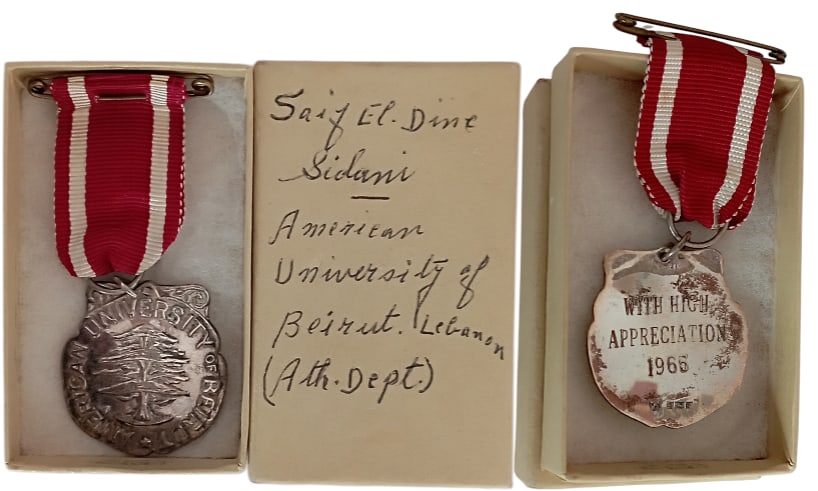 AMERICAN UNIVERSITY OF BEIRUT
Saif El-Dine
Sidani
American
University of
Beirut. Lebanon
(Ath. Dept.)
WITH HIGH
APPRECIATION
1966